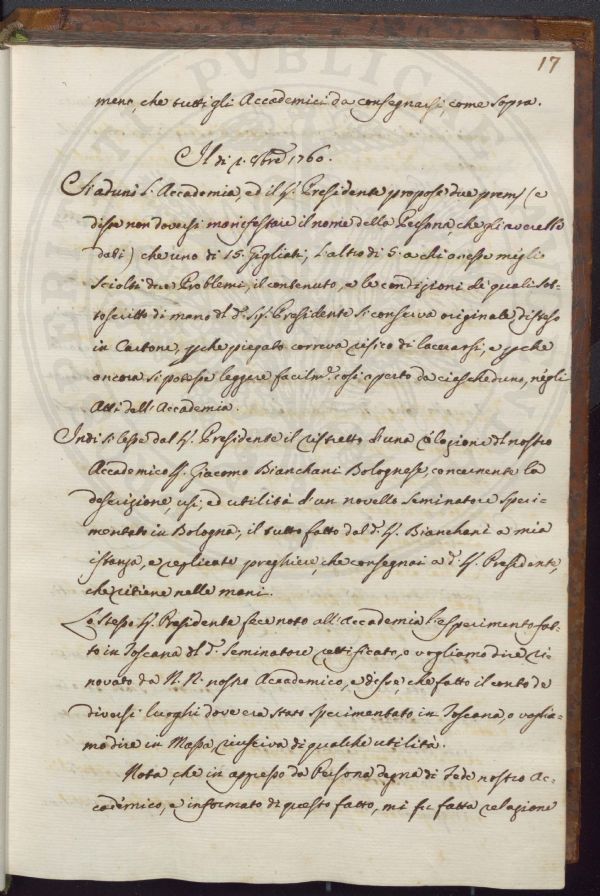 17
meno, che tutti gli Accademici da consegnarsi, come sopra.
Il dì 1. 1760.
Si adunò l'Accademia, ed il Sig. Presidente propose due premj (e
disse non doversi manifestare il nome della Persona, che gli averebbe
dati) che uno di 15. Gigliati, l'altro di 5. a chi avesse meglio
sciolti due Problemi, il contenuto, e le condizioni de' quali sot-
toscritto di mano dl d.º Sig. Presidente si conserva originale disteso
in Cartone, pche piegato correva risico di lacerarsi, e pche
ancora si potesse leggere facilm.e così aperto da ciascheduno, negli
Atti dell'Accademia.
Indi si lesse dal Sig. Presidente il ristretto d'una relazione dl nostro
Accademico Sig. Giacomo Bianchani Bolognese, concernente la
descrizione, usi, ed utilità d'un novello Seminatore speri-
mentato in Bologna; il tutto fatto dal d.º Sig. Bianchani a mia
istanza, e replicate preghiere, che consegnai a d.º Sig. Presidente,
che ritiene nelle mani.
Lo stesso Sig. Presidente fece noto all'Accademia l'esperimento fat-
to in Toscana dl d.º Seminatore rettificato, o vogliamo dire ri-
novato da N. N. nostro Accademico, e disse, che fatto il conto de
diversi luoghi dove era stato sperimentato in Toscana, o voglia-
mo dire in Massa, riusciva di qualche utilità.
Nota, che in appresso da Persona degna di Fede nostro Ac-
cademico, e informato di questo fatto, mi fu fatta relazione